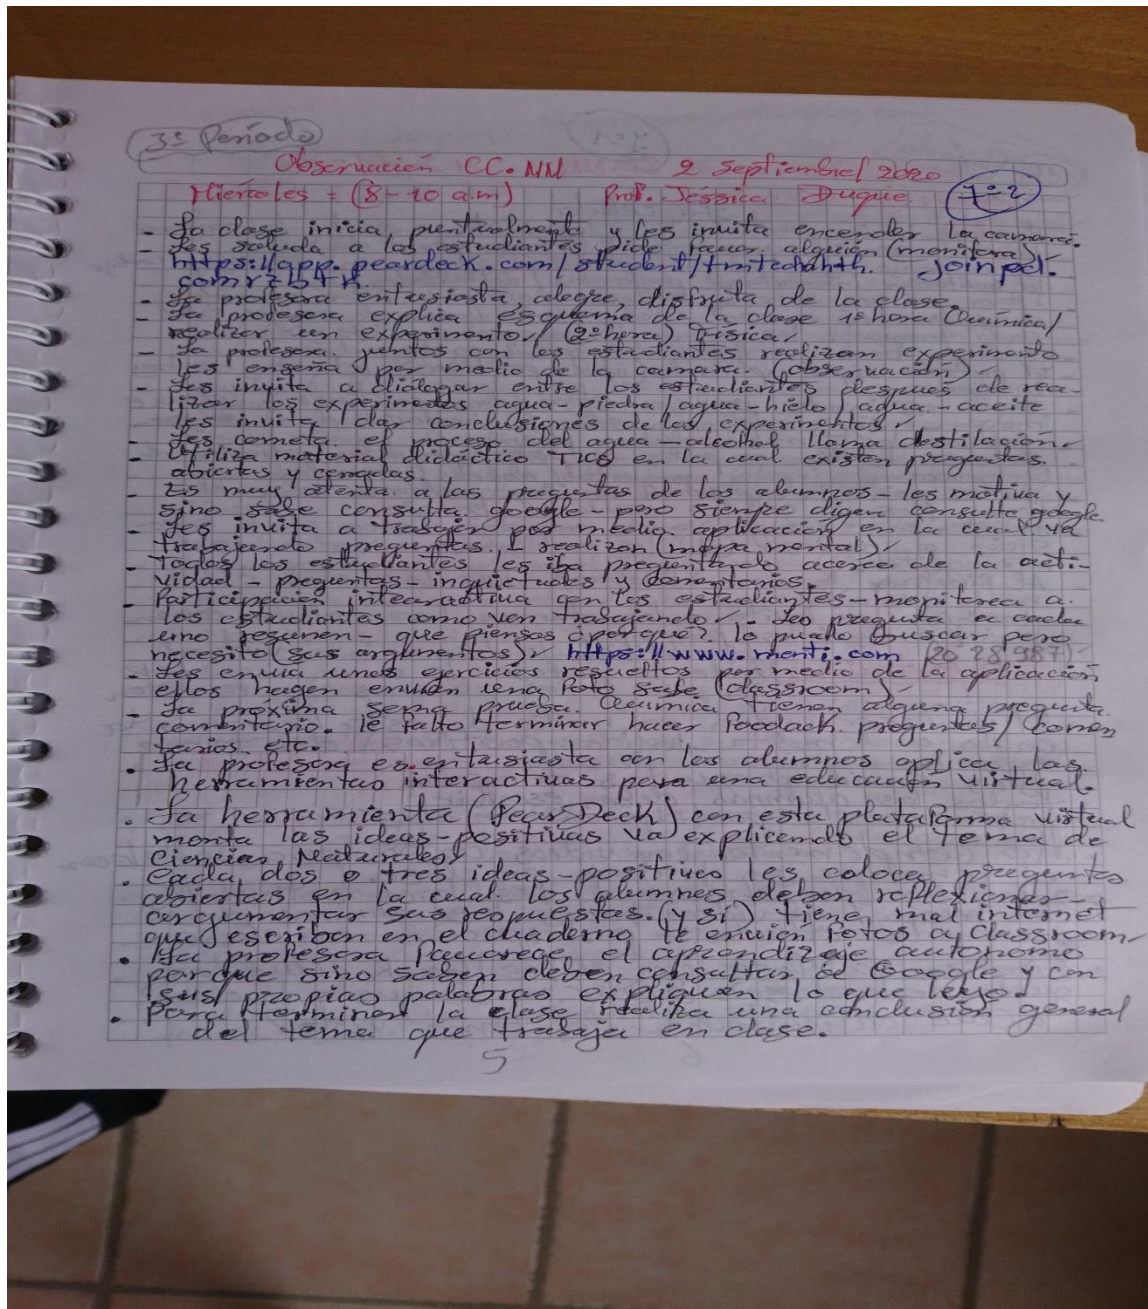 3º Período
Observación CC.NN 2 Septiembre/ 2020
Miércoles = (8-10 a.m) Prof. Jessica Duque 7-2
- La clase inicia puntualmente y les invita encender la camara.
- Les saluda a los estudiantes pide favor alguién (monitora)
https://app.peardeck.com/student/ joinpd.
- La profesora entusiasta, alegre, disfruta de la clase.
- La profesora explica esquema de la clase 1º hora Química/
realizar un experimento/ (2º hora) Física.
- La profesora juntos con los estudiantes realizan experimento
les enseña por medio de la camara. (observación)
- Les invita a diálogar entre los estudiantes después de rea-
lizar los experimentos agua-piedra/agua-hielo/agua-aceite
les invita dar conclusiones de los experimentos.
- Les cometa el proceso del agua-alcohol llama destilación.
- Utiliza material didáctico TICS en la cual existen preguntas.
abiertas y cerradas.
- Es muy atenta a las preguntas de los alumnos - les motiva y
sino sabe consulta google - pero siempre digan consulte google.
- Les invita a trabajar por medio aplicación en la cual va
trabajando preguntas. realizan (mapa mental)
- Todos los estudiantes les iba preguntando acerca de la acti-
vidad - preguntas - inquietudes y comentarios.
- Participación intearactiva con los estudiantes - monitorea a
los estudiantes como van trabajando - Leo pregunta a cada
uno resumen - que piensas ¿porqué? lo puedo buscar pero
necesito (sus argumentos) https://www.menti.com (20 28 987)
- Les envia unos ejercicios resueltos por medio de la aplicación
ellos hagen envían una foto sube (classroom)
- La próxima sema prueba. Química tienen alguna pregunta
comentario. le falto terminar hacer Feedack preguntas/ comen
tarios. etc.
• La profesora es entusiasta con los alumnos aplica las
herramientas interactivas para una educación virtual.
• La herramienta (Pear Deck) con esta plataforma virtual
monta las ideas-positivas va explicando el tema de
Ciencias Naturales.
• Cada dos o tres ideas-positivo les coloca preguntas
abiertas en la cual los alumnos deben reflexionar-
argumentar sus respuestas. (y si) tiene mal internet
que escriban en el cuaderno le envien fotos a classroom
• La profesora el aprendizaje autonomo
porque sino saben deben consultar Google y con
sus propias palabras expliquen lo que leyo.
• Para terminar la clase realiza una conclusión general
del tema que trabaja en clase.
5